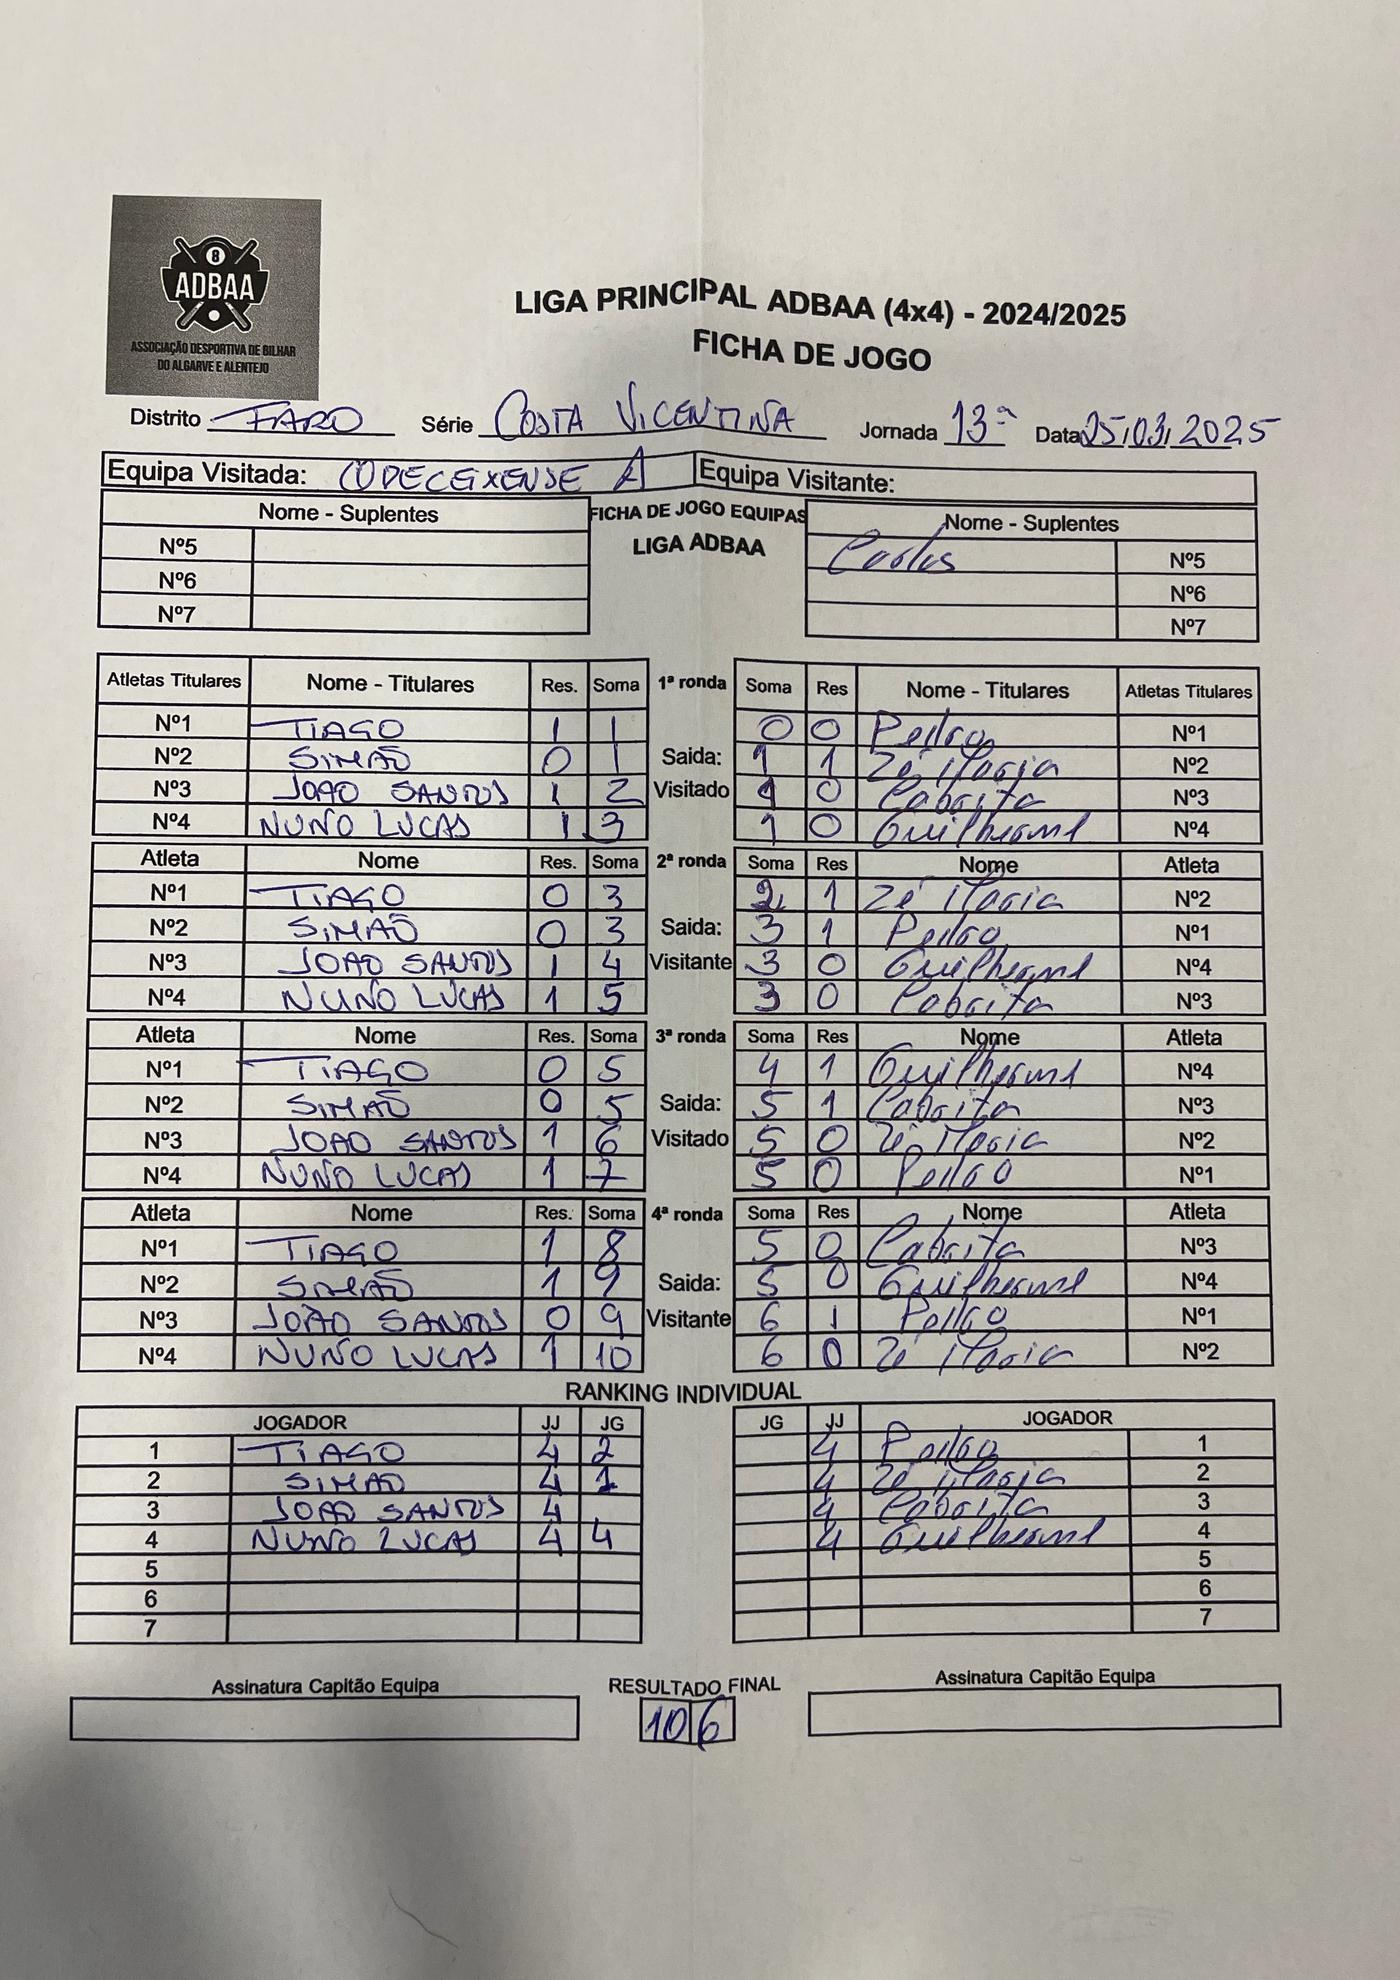 8
ADBAA
ASSOCIAÇÃO DESPORTIVA DE BILHAR
DO ALGARVE E ALENTEJO
LIGA PRINCIPAL ADBAA (4x4) - 2024/2025
FICHA DE JOGO
Distrito FARO Série COSTA VICENTINA Jornada 13ª Data 25/03/2025
Equipa Visitada: ODECEIXENSE A Equipa Visitante:
Nome - Suplentes FICHA DE JOGO EQUIPAS Nome - Suplentes
LIGA ADBAA
Nº5 Carlos Nº5
Nº6 Nº6
Nº7 Nº7
Atletas Titulares Nome - Titulares Res. Soma 1ª ronda Soma Res Nome - Titulares Atletas Titulares
Nº1 TIAGO 1 1 0 0 Pedro Nº1
Nº2 SIMÃO 0 1 Saida: 1 1 Zé Maria Nº2
Nº3 JOÃO SANTOS 1 2 Visitado 1 0 Cabrita Nº3
Nº4 NUNO LUCAS 1 3 1 0 Guilherme Nº4
Atleta Nome Res. Soma 2ª ronda Soma Res Nome Atleta
Nº1 TIAGO 0 3 2 1 Zé Maria Nº2
Nº2 SIMÃO 0 3 Saida: 3 1 Pedro Nº1
Nº3 JOAO SANTOS 1 4 Visitante 3 0 Guilherme Nº4
Nº4 NUNO LUCAS 1 5 3 0 Cabrita Nº3
Atleta Nome Res. Soma 3ª ronda Soma Res Nome Atleta
Nº1 TIAGO 0 5 4 1 Guilherme Nº4
Nº2 SIMÃO 0 5 Saida: 5 1 Cabrita Nº3
Nº3 JOAO SANTOS 1 6 Visitado 5 0 Zé Maria Nº2
Nº4 NUNO LUCAS 1 7 5 0 Pedro Nº1
Atleta Nome Res. Soma 4ª ronda Soma Res Nome Atleta
Nº1 TIAGO 1 8 5 0 Cabrita Nº3
Nº2 SIMÃO 1 9 Saida: 5 0 Guilherme Nº4
Nº3 JOÃO SANTOS 0 9 Visitante 6 1 Pedro Nº1
Nº4 NUNO LUCAS 1 10 6 0 Zé Maria Nº2
RANKING INDIVIDUAL
JOGADOR JJ JG JG JJ JOGADOR
1 TIAGO 4 2 4 Pedro 1
2 SIMÃO 4 1 4 Zé Maria 2
3 JOAO SANTOS 4 4 Cabrita 3
4 NUNO LUCAS 4 4 4 Guilherme 4
5 5
6 6
7 7
Assinatura Capitão Equipa RESULTADO FINAL Assinatura Capitão Equipa
10 6